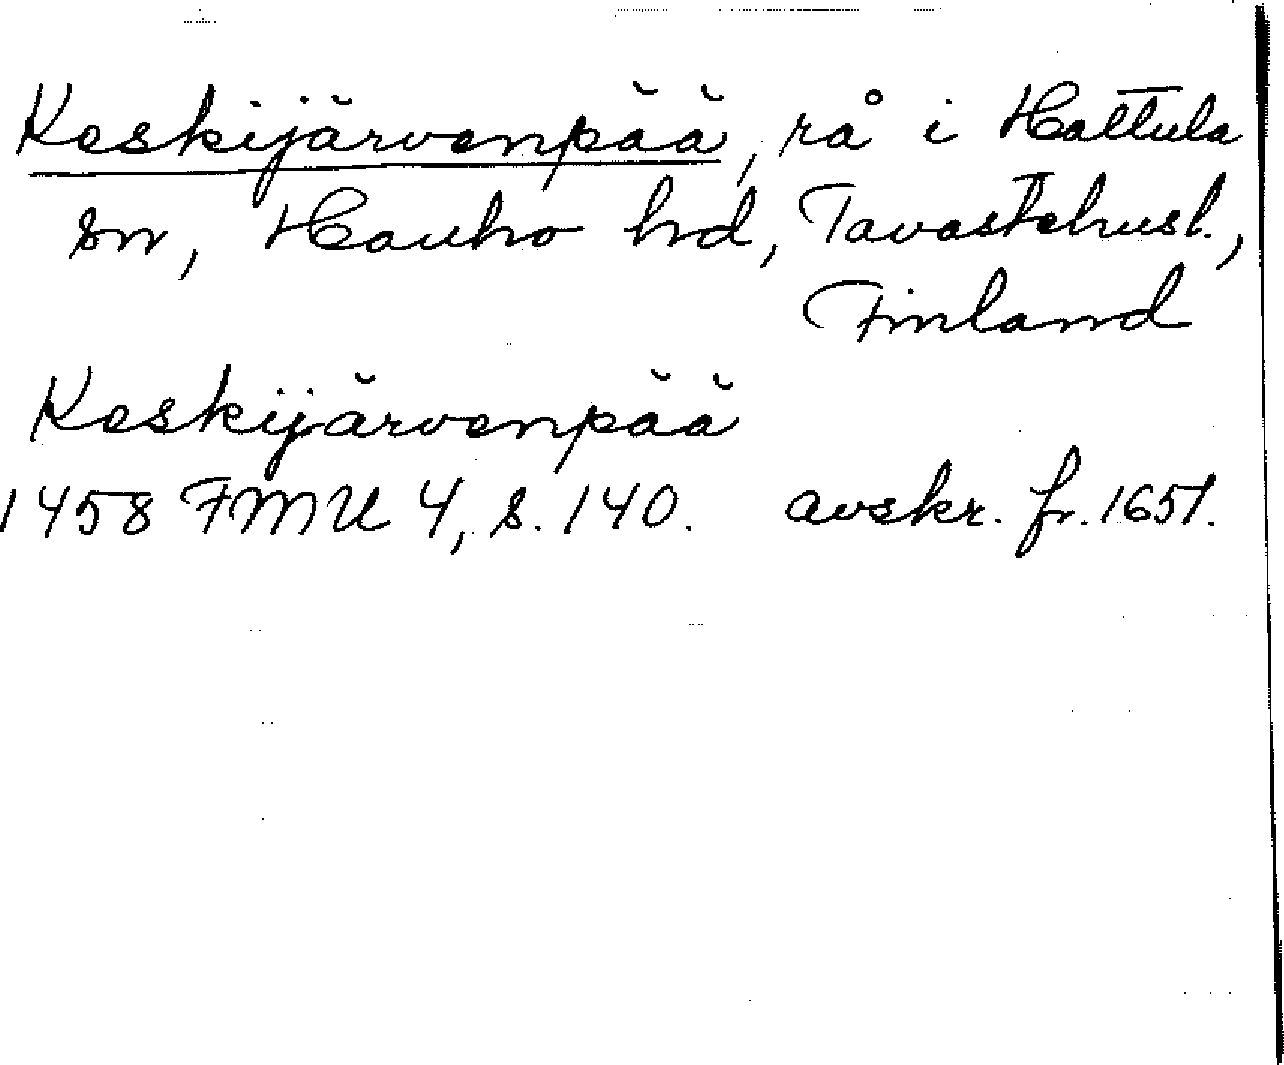 Keskijärvenpää, rå i Hattula
sn, Hauho hd, Tavastehusl.,
Finland
Keskijärvenpää
1458 FMU 4, s. 140. avskr. fr. 1651.